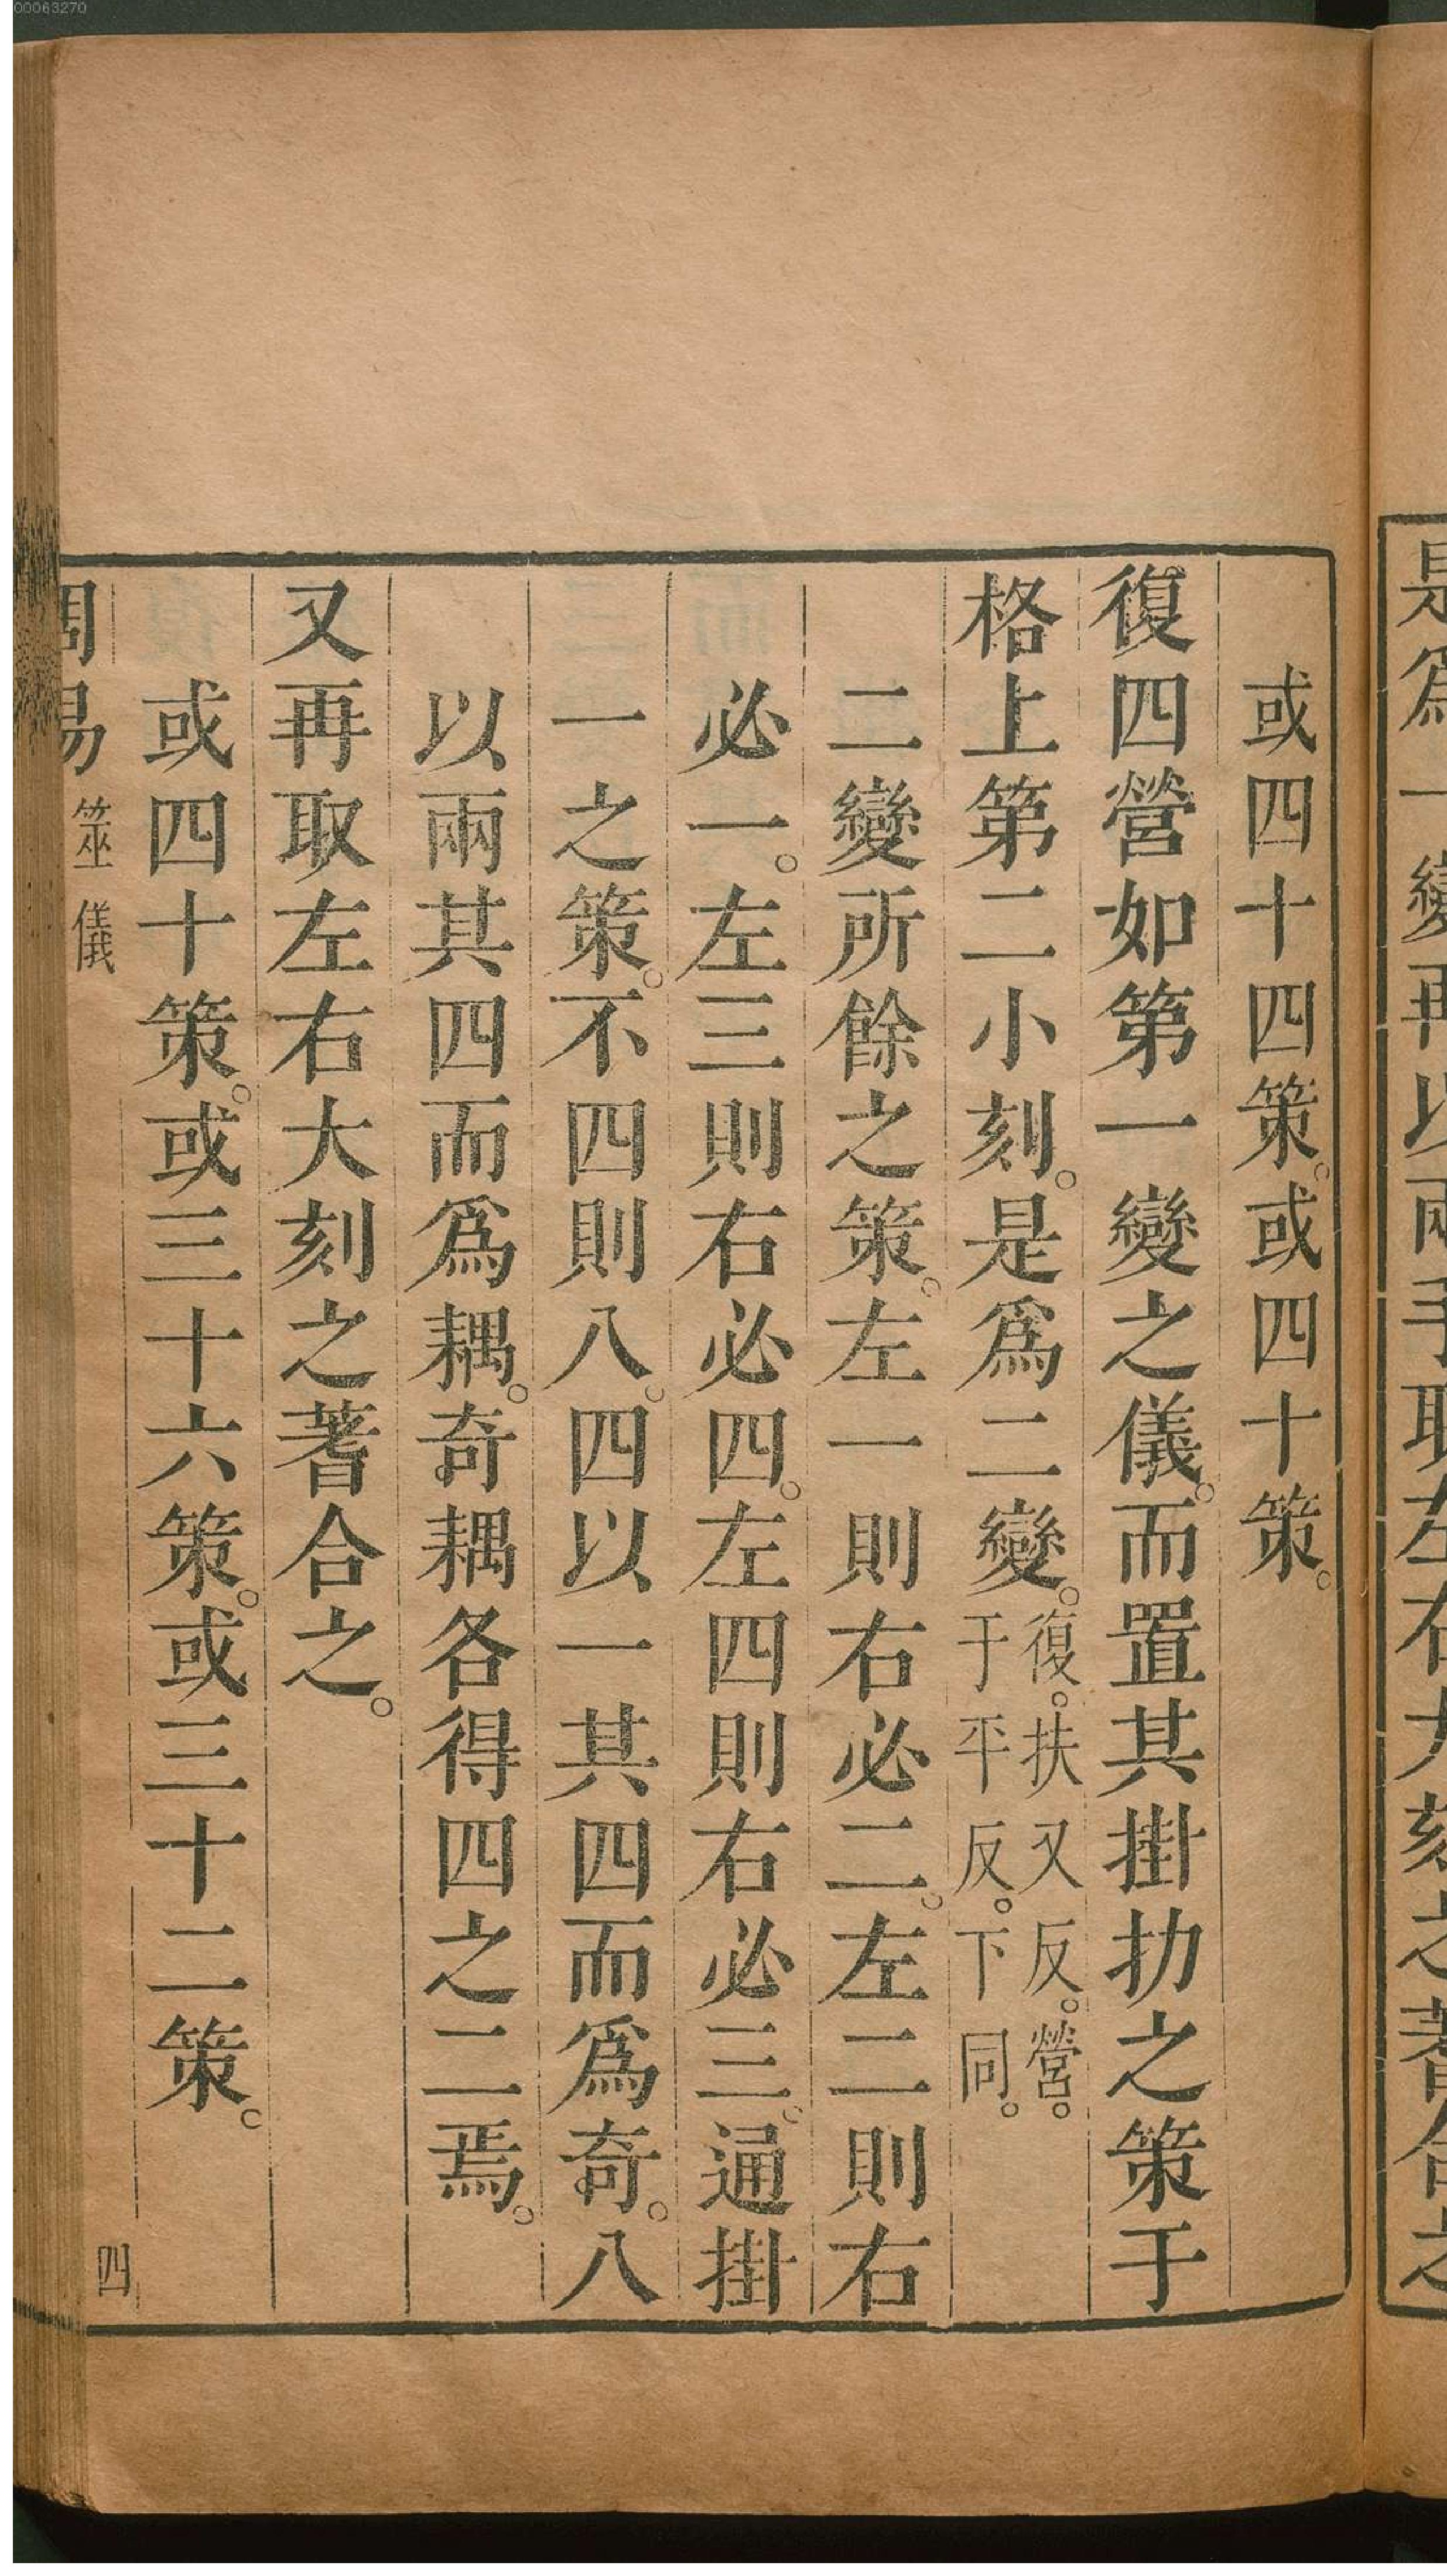 00063270
是爲一變再以兩手取左右大刻之蓍合之
或四十四策。或四十策。
復四營如第一變之儀。而置其掛扐之策于
格上第二小刻。是爲二變。復。扶又反。營。于平反。下同。
二變所餘之策。左一則右必二。左二則右
必一。左三則右必四。左四則右必三。通掛
一之策。不四則八。四以一其四而爲奇。八
以兩其四而爲耦。奇耦各得四之二焉。
又再取左右大刻之蓍合之。
或四十策。或三十六策。或三十二策。
周易 筮儀 四